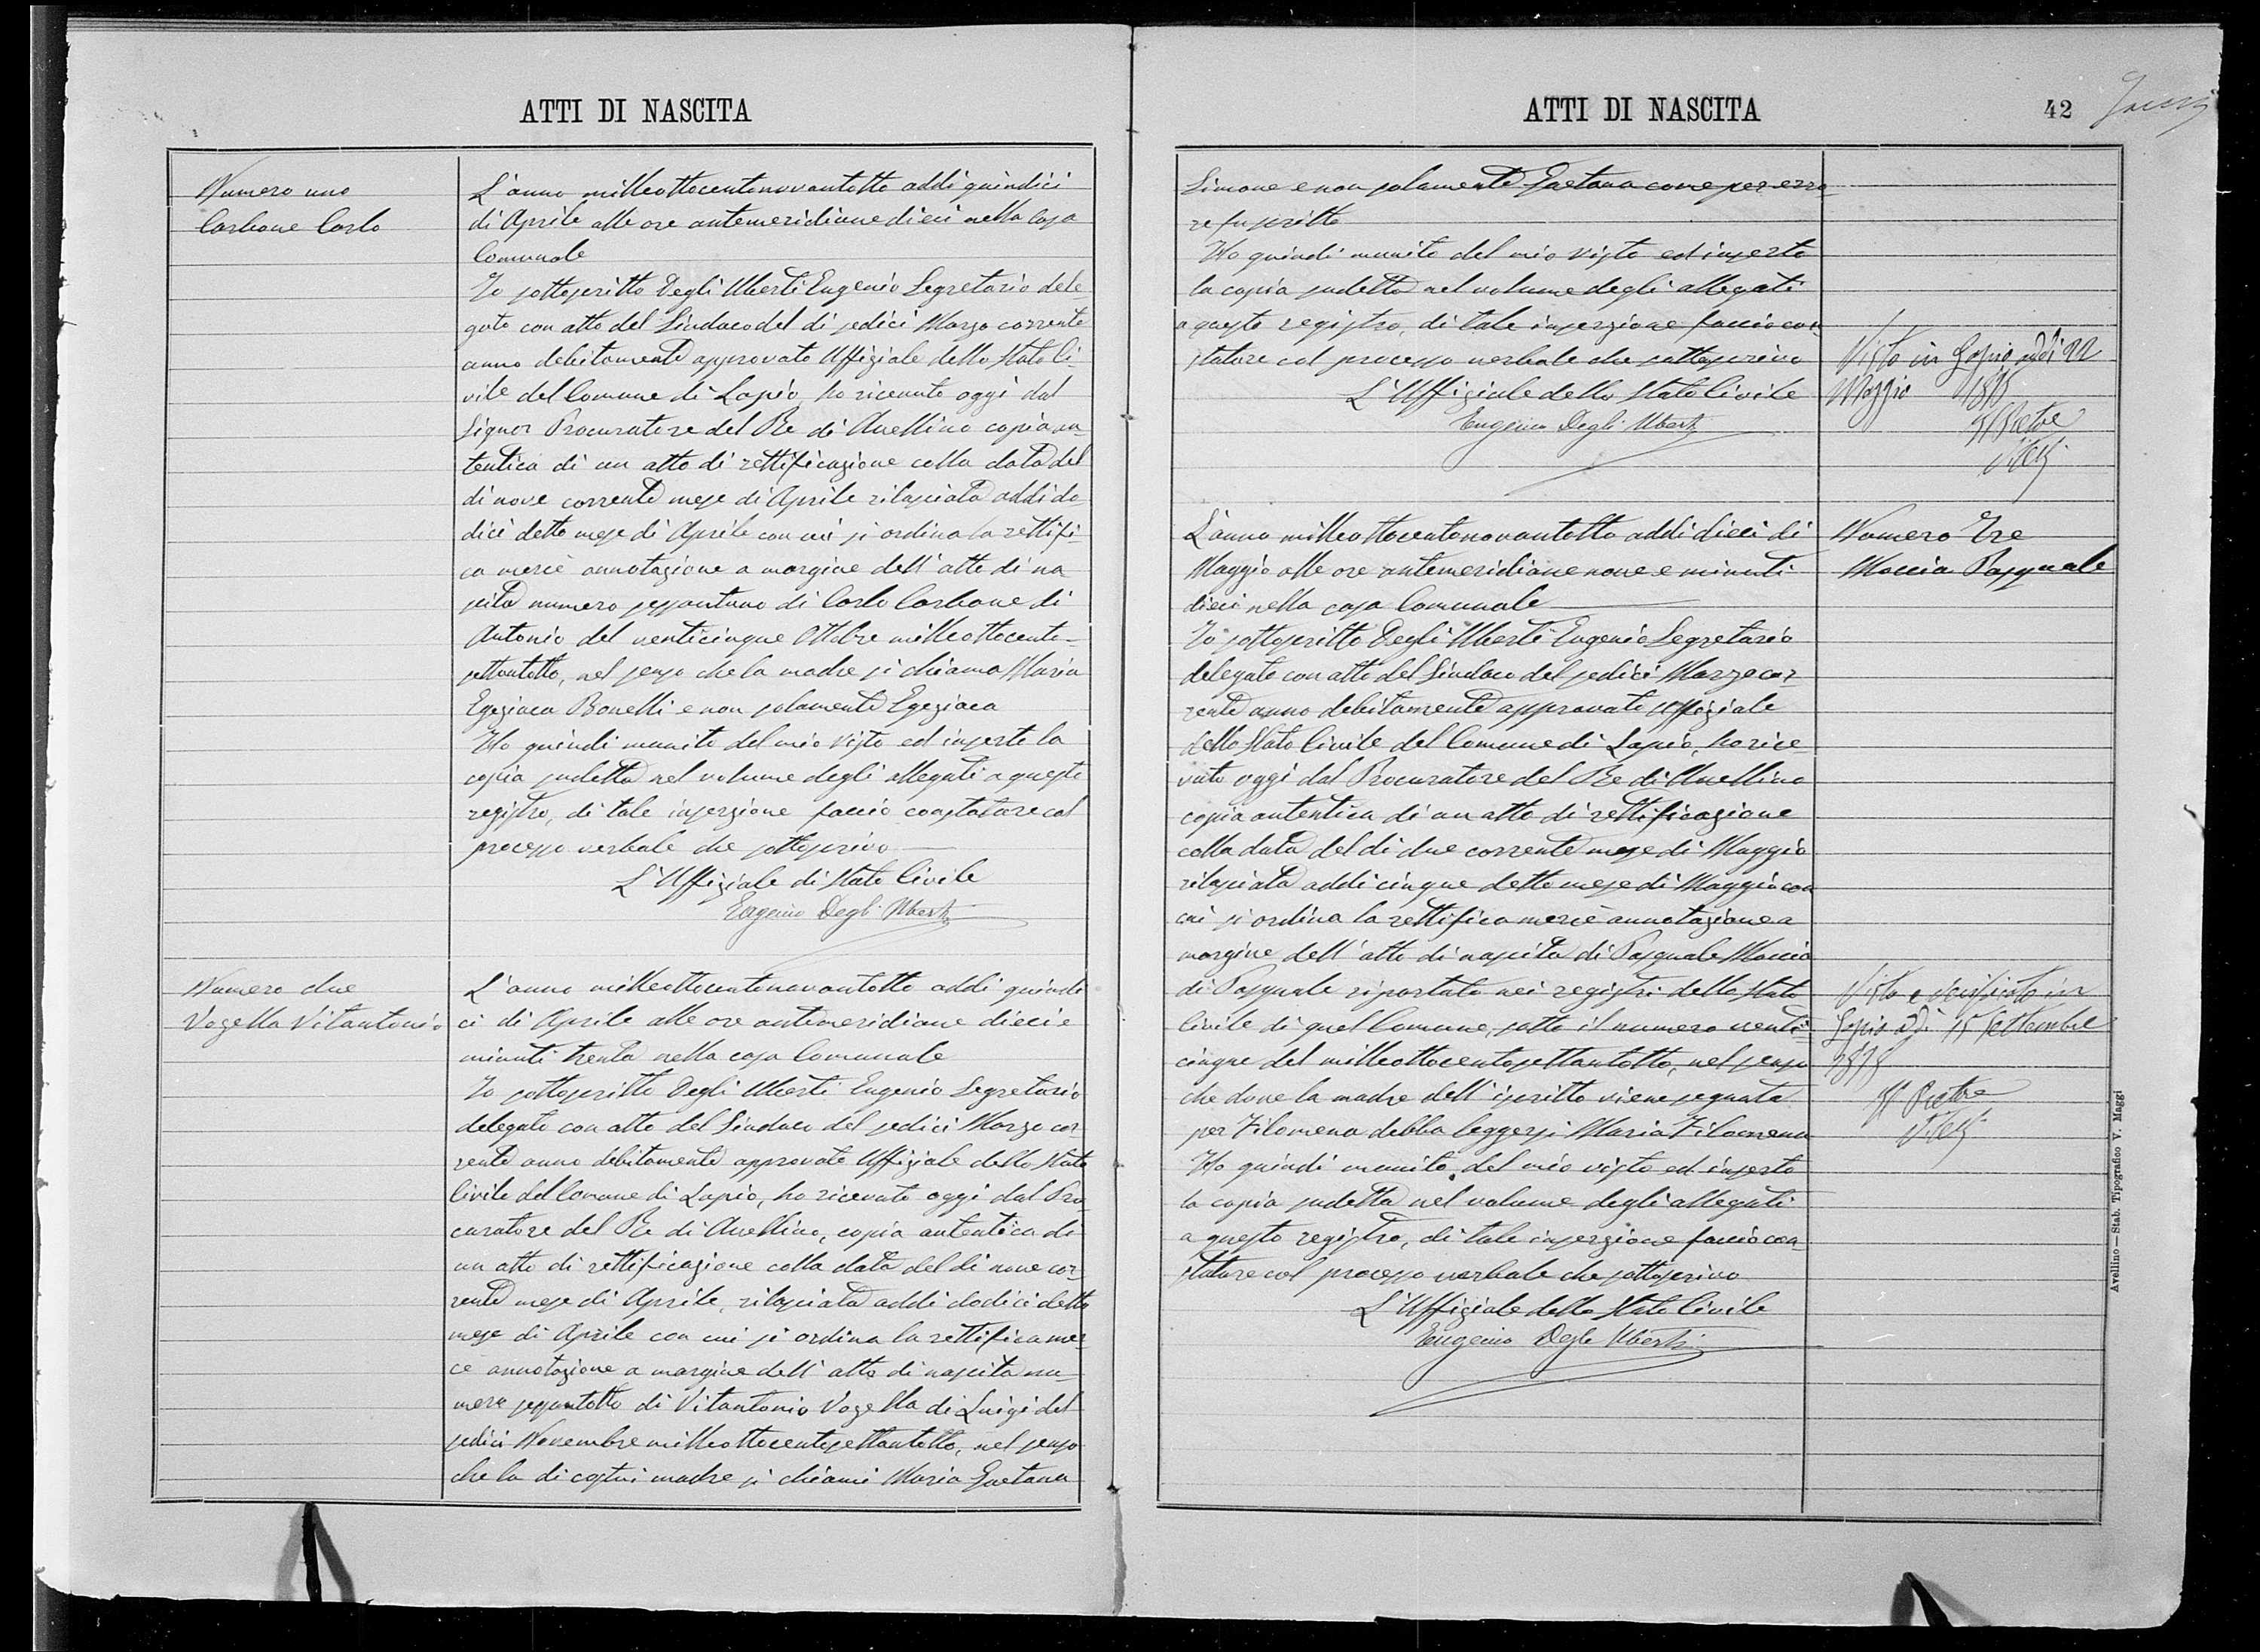 ATTI DI NASCITA
Numero uno
Carbone Carlo
L'anno milleottocentonovantotto addì quindici
di Aprile alle ore antemeridiane dieci nella Casa
Comunale
Io sottoscritto Degli Uberti Eugenio Segretario dele-
gato con atto del Sindaco del di sedici Marzo corrente
anno debitamente approvato Uffiziale dello Stato Ci-
vile del Comune di Lapio, ho ricevuto oggi dal
Signor Procuratore del Re di Avellino copia au-
tentica di un atto di rettificazione colla data del
di nove corrente mese di Aprile rilasciata addì do-
dici detto mese di Aprile con cui si ordina la rettifi-
ca mercè annotazione a margine dell'atto di na
scita numero sessantuno di Carlo Carbone di
Antonio del venticinque Ottobre milleottocento-
settantotto, nel senso che la madre si chiama Maria
Egiziaca Bonelli e non solamente Egeziaca
Ho quindi munito del mio visto ed inserto la
copia sudetta nel volume degli allegati a questo
registro, di tale inserzione faccio constatare col
processo verbale che sottoscrivo
L'Uffiziale di Stato Civile
Eugenio Degli Uberti
Numero due
Vozella Vitantonio
L'anno milleottocentonovantotto addì quindi
ci di Aprile alle ore antimeridiane dieci e
minuti trenta nella casa Comunale
Io sottoscritto Degli Uberti Eugenio Segretario
delegato con atto del Sindaco del sedici Marzo cor-
rente anno debitamente approvato Uffiziale dello Stato
Civile del Comune di Lapio, ho ricevuto oggi dal Pro
curatore del Re di Avellino, copia autentica di
un atto di rettificazione colla data del di nove cor-
rente mese di Aprile, rilasciata addì dodici detto
mese di Aprile con cui si ordina la rettifica mer-
cè annotazione a margine dell'atto di nascita nu-
mero sessantotto di Vitantonio Vozella di Luigi del
sedici Novembre milleottocentosettantotto, nel senso
che la di costui madre si chiami Maria Gaetana
ATTI DI NASCITA
42
Simone e non solamente Gaetana come per erro-
re fu scritto
Ho quindi munito del mio visto ed inserto
la copia sudetta nel volume degli allegati
a questo registro, di tale inserzione faccio con-
statare col processo verbale che sottoscrivo
L'Uffiziale dello Stato Civile
Eugenio Degli Uberti
Visto in Lapio addì 22
Maggio 1898
Il Pretore
L'anno milleottocentonovantotto addì dieci di
Maggio alle ore antemeridiane nove e minuti
dieci nella casa Comunale
Io sottoscritto Degli Uberti Eugenio Segretario
delegato con atto del Sindaco del sedici Marzo cor-
rente anno debitamente approvato Uffiziale
dello Stato Civile del Comune di Lapio, ho rice-
vuto oggi dal Procuratore del Re di Avellino
copia autentica di un atto di rettificazione
colla data del di due corrente mese di Maggio
rilasciata addì cinque detto mese di Maggio con
cui si ordina la rettifica mercè annotazione a
margine dell'atto di nascita di Pasquale Moccia
di Pasquale riportato nei registri dello Stato
Civile di quel Comune, sotto il numero venti-
cinque del milleottocentosettantotto, nel senso
che dove la madre dell'iscritto viene segnata
per Filomena debba leggersi Maria Filomena
Ho quindi munito del mio visto ed inserto
la copia sudetta nel volume degli allegati
a questo registro, di tale inserzione faccio con-
statare col processo verbale che sottoscrivo
L'Uffiziale dello Stato Civile
Eugenio Degli Uberti
Numero Tre
Moccia Pasquale
Visto e verificato in
Lapio addì 15 Settembre
1898
Il Pretore
Avellino — Stab. Tipografico V. Maggi